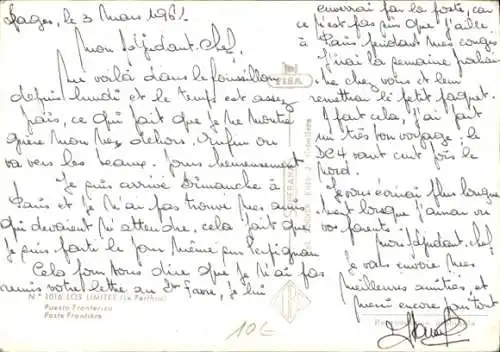 Lagos, le 3 Mars 1961
Mon Adjudant-Chef,
Me voilà dans le Roussillon
depuis lundi et le temps est assez
frais, ce qui fait que je ne montre
guère mon nez dehors. Enfin on
va vers les beaux jours heureusement
Je suis arrivé Dimanche à
Paris et je n'ai pas trouvé mes amis
qui devaient m'attendre, cela fait que
je suis parti le jour même sur Perpignan
Cela pour vous dire que je n'ai pas
remis votre lettre au Dr Favre, je lui
enverrai par la poste, car
ce n'est pas sûr que j'aille
à Paris pendant mes congés
J'irai la semaine
chez vous et leur
remettrai le petit paquet.
A part cela, j'ai fait
un très bon voyage: le
DC4 vaut cent fois le
Nord.
Je vous écrirai plus longue
ment lorsque j'aurai vu
vos parents.
Mon Adjudant-Chef
je vous envoie mes
meilleures amitiés, et
merci encore pour tout
FISA
N° 1016 LOS LIMITES (Le Perthus)
Puesto Fronterizo
Poste Frontière
10€